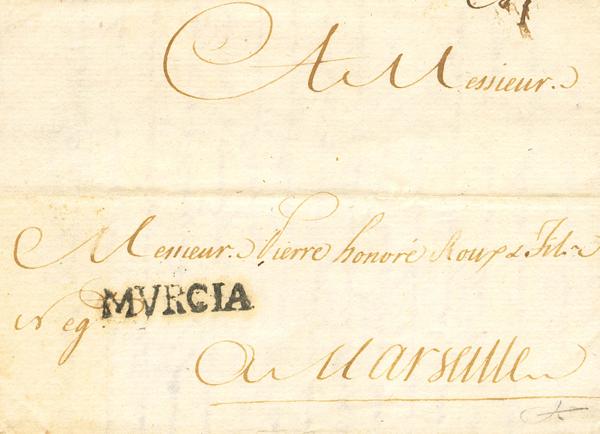 A Messieur
Messieur Pierre honoré Roux & Fils
Neg
MVRCIA
A Marseille